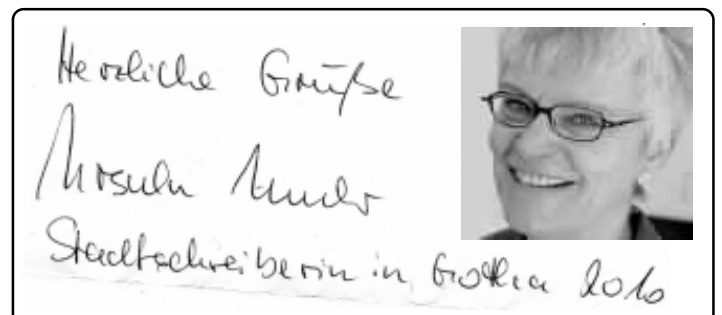 Herzliche Grüße
Ursula
Stadtschreiberin in Gotha 2010